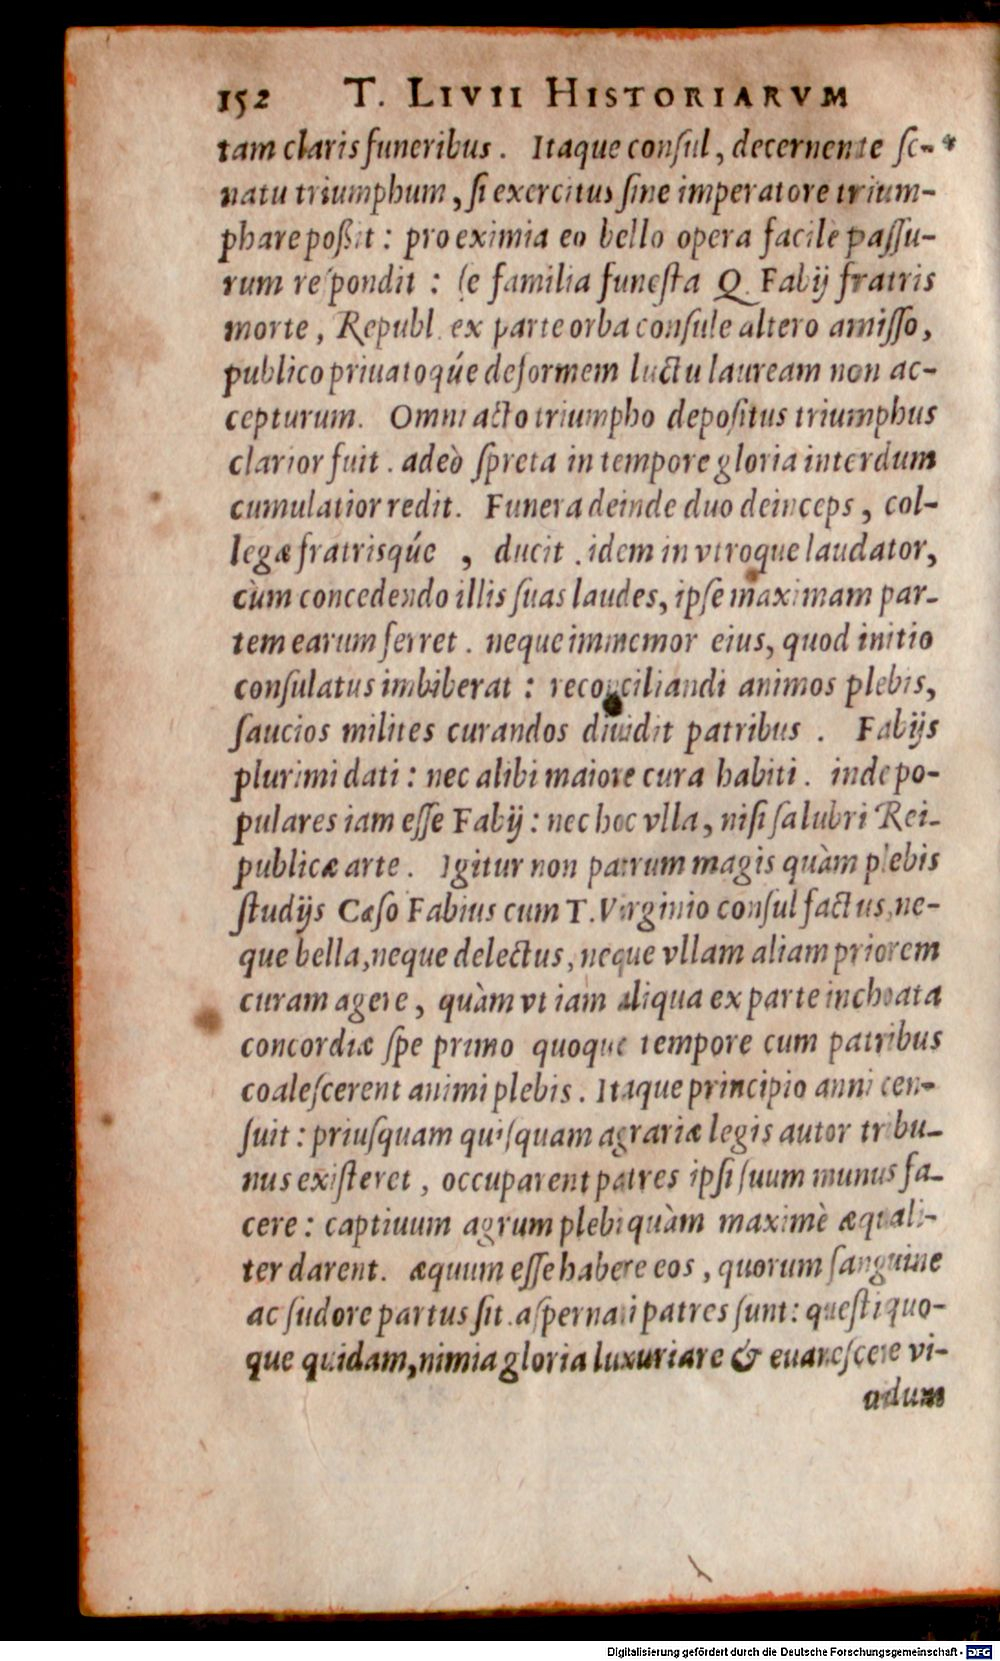 152 T. LIVII HISTORIARVM
tam claris funeribus. Itaque consul, decernente se- *
natu triumphum, si exercitus sine imperatore trium-
phare poßit: pro eximia eo bello opera facilè passu-
rum respondit: se familia funesta Q. Fabij fratris
morte, Republ. ex parte orba consule altero amisso,
publico priuatoqúe deformem luctu lauream non ac-
cepturum. Omni acto triumpho depositus triumphus
clarior fuit. adeò spreta in tempore gloria interdum
cumulatior redit. Funera deinde duo deinceps, col-
legæ fratrisqúe, ducit. idem in vtroque laudator,
cùm concedendo illis suas laudes, ipse maximam par-
tem earum ferret. neque immemor eius, quod initio
consulatus imbiberat: reconciliandi animos plebis,
saucios milites curandos diuidit patribus. Fabijs
plurimi dati: nec alibi maiore cura habiti. inde po-
pulares iam esse Fabij: nec hoc vlla, nisi salubri Rei-
publicæ arte. Igitur non patrum magis quàm plebis
studijs Cæso Fabius cum T. Virginio consul factus, ne-
que bella, neque delectus, neque vllam aliam priorem
curam agere, quàm vt iam aliqua ex parte inchoata
concordiæ spe primo quoque tempore cum patribus
coalescerent animi plebis. Itaque principio anni cen-
suit: priusquam quisquam agrariæ legis autor tribu-
nus existeret, occuparent patres ipsi suum munus fa-
cere: captiuum agrum plebi quàm maximè æquali-
ter darent. æquum esse habere eos, quorum sanguine
ac sudore partus sit. aspernati patres sunt: questi quo-
que quidam, nimia gloria luxuriare & euanescere vi-
uidum
Digitalisierung gefördert durch die Deutsche Forschungsgemeinschaft - DFG